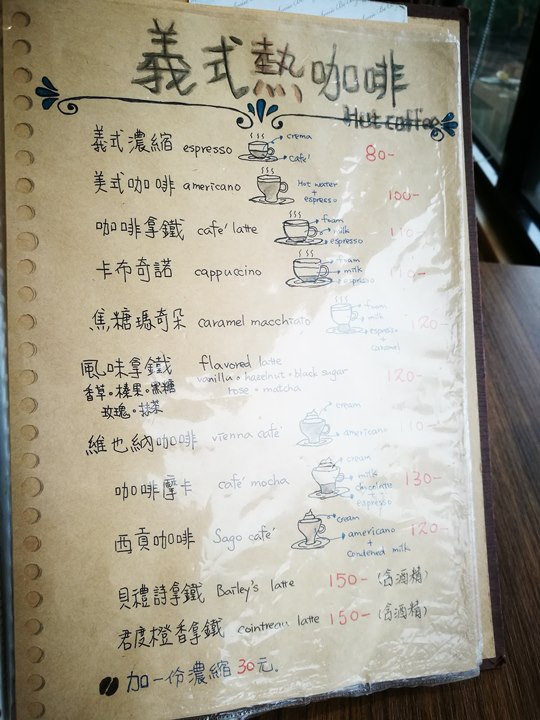 義式熱咖啡
Hot coffee
義式濃縮 espresso crema café 80-
美式咖啡 americano Hot water + espresso 100-
咖啡拿鐵 café latte foam milk espresso 110-
卡布奇諾 cappuccino foam milk espresso 110-
焦糖瑪奇朵 caramel macchiato foam milk espresso + caramel 120-
風味拿鐵 flavored latte 120-
香草。榛果。黑糖 vanilla。hazelnut。black sugar
玫瑰。抹茶 rose。matcha
維也納咖啡 vienna café cream americano
咖啡摩卡 café mocha cream milk chocolate + espresso 130-
西貢咖啡 Sago café cream americano + condensed milk 120-
貝禮詩拿鐵 Bailey's latte 150- (含酒精)
君度橙香拿鐵 cointreau latte 150- (含酒精)
加一份濃縮 30元。